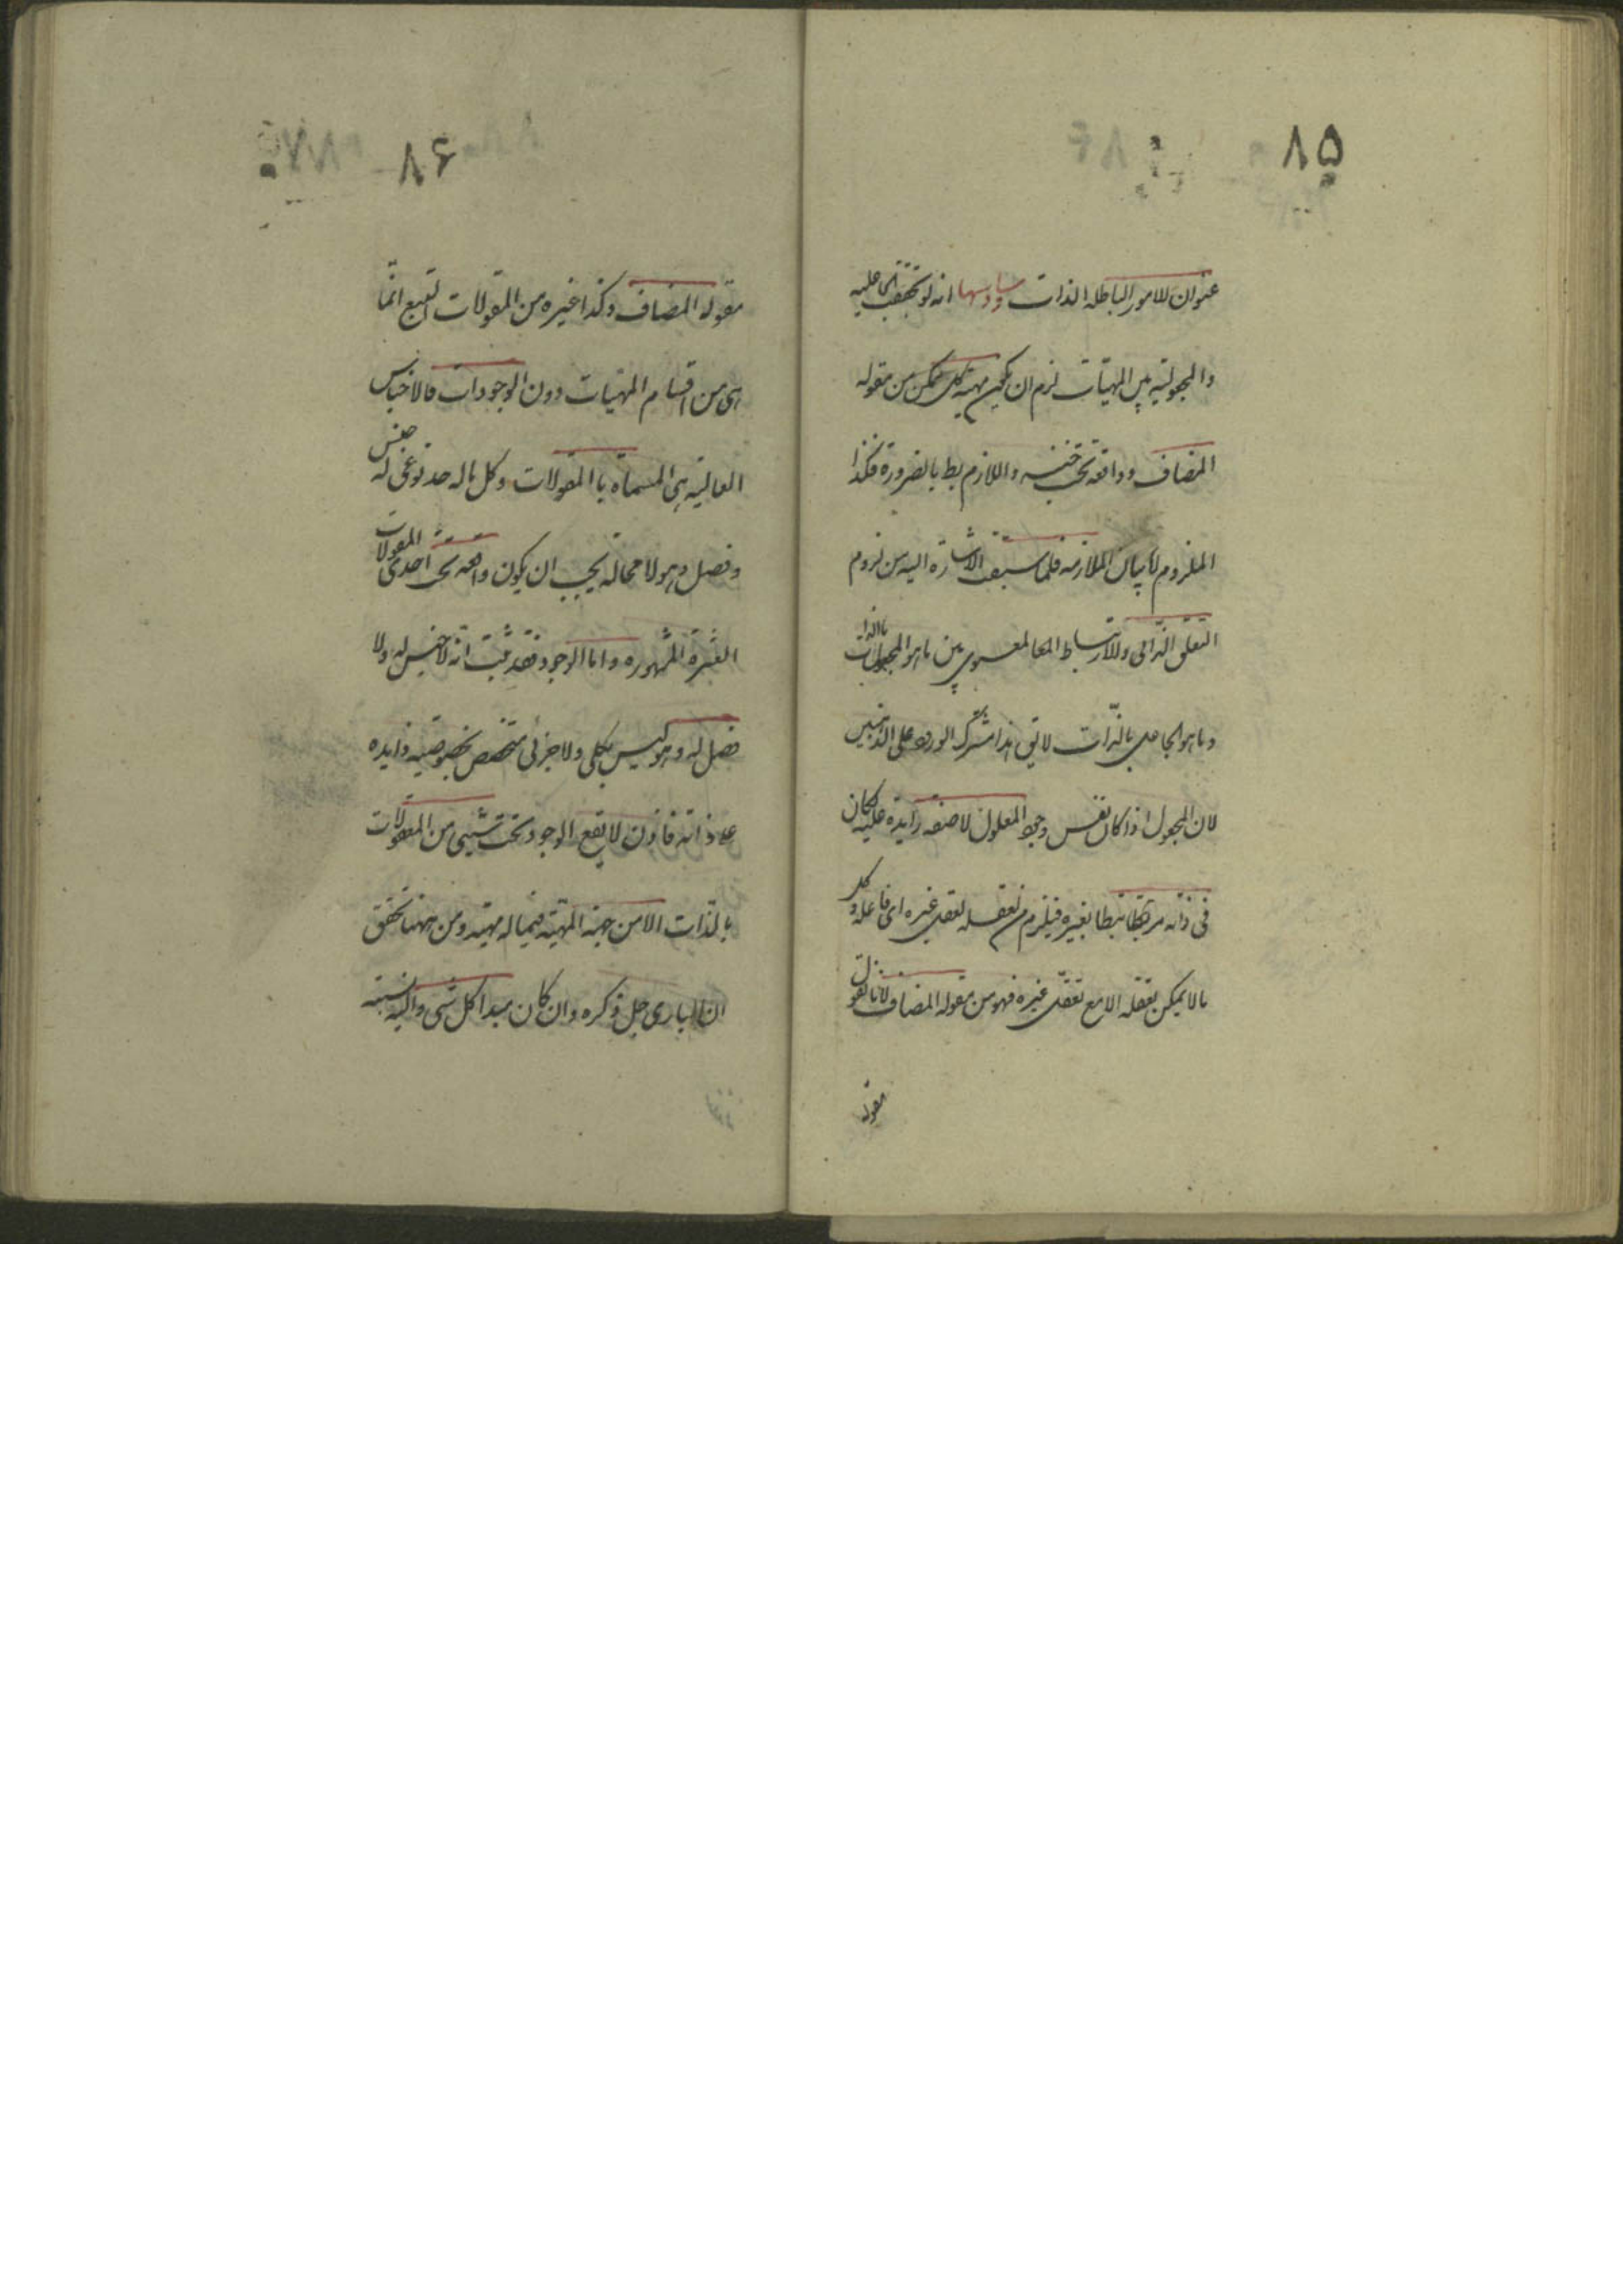 ٨۵
عنوان للامور الباطلة الذات وسادسها انه لو تحقق الجاعلیه
والمجعولیه بین المهیات لزم ان یکون مهیة کل ممکن من مقوله
المضاف وواقعة تحت جنسه واللازم بط بالضرورة فکذا
الملزوم اما بیان الملازمه فلما سبقت الاشارة الیه من لزوم
التعلق الذاتی والارتباط المعنوی بین ما هو المجعول بالذات
وما هو الجاعل بالذات لا یق هذا مشترک الورود علی المذهبین
لان المجعول اذا کان نفس وجود المعلول لا صفة زایدة علیه فکان
فی ذاته مرتبطا بغیره فیلزم من تعقله تعقل غیره ای فاعله وکل
ما لا یمکن تعقله الا مع تعقل غیره فهو من مقوله المضاف لانا نقول
مقوله
٨۶
مقوله المضاف وکذا غیره من المقولات التسع انما
هی من اقسام المهیات دون الوجودات فالاجناس
العالیه هی المسماة باالمقولات وکل ما له حد نوعی له جنس
وفصل وهو لا محالة یجب ان یکون واقعة تحت احدی المقولات
العشرة المشهوره واما الوجود فقد ثبت انه لا جنس له ولا
فصل له وهو لیس بکلی ولا جزئی متخصص بخصوصیه زایده
علی ذاته فاذن لا یقع الوجود تحت شیی من المقولات
بالذات الا من جهة المهیة فیما له مهیة ومن ههنا تحقق
ان الباری جل ذکره وان کان مبدا کل شی والیه نسبته